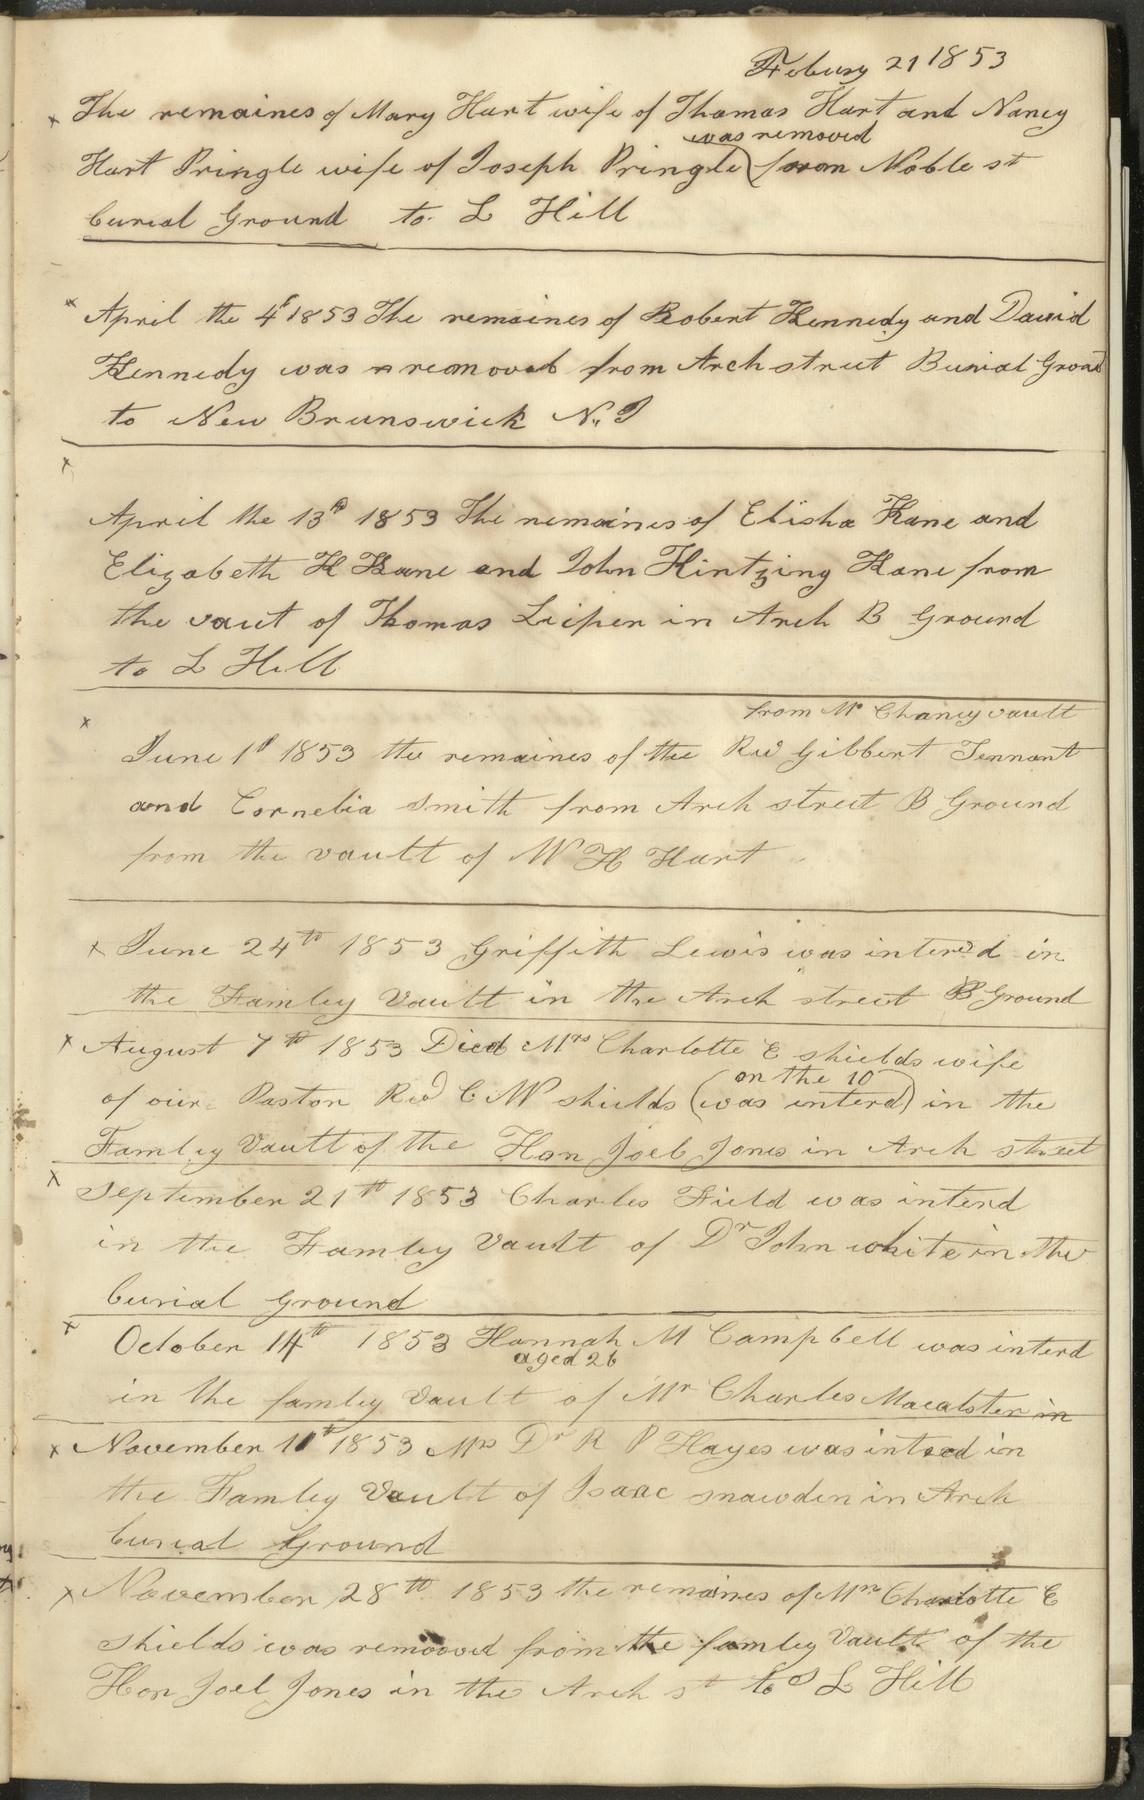 Febury 21 1853
x The remaines of Mary Hart wife of Thomas Hart and Nancy
was removed
Hart Pringle wife of Joseph Pringle from Noble st
burial Ground to L Hill
x April the 4t 1853 The remaines of Robert Kennedy and David
Kennedy was removed from Arch street Burial Ground
to New Brunswick N. J
x
April the 13th 1853 The remaines of Elisha Kane and
Elizabeth H Kane and John Kintzing Kane from
the vaut of Thomas Leiper in Arch B Ground
to L Hill
x from Mr Chancy vault
June 1st 1853 the remaines of the Rev Gilbert Tennant
and Cornelia Smith from Arch street B Ground
from the vault of W H Hart
x June 24th 1853 Griffith Lewis was intered in
the Famley Vault in the Arch street B Ground
x August 7th 1853 Died Mrs Charlotte E shields wife
on the 10
of our Paston Revd C W shields (was interd) in the
Famley Vault of the Hon Joel Jones in Arch street
x September 21th 1853 Charles Field was interd
in the Famley Vault of Dr John white in the
burial Ground
x October 14th 1853 Hannah M Campbell was interd
aged 26
in the famley Vault of Mr Charles Macalster in
x November 11th 1853 Mrs Dr R P Hayes was intered in
the Famley Vault of Isaac snowden in Arch
burial Ground
x November 28th 1853 the remaines of Mrs Charlotte E
shields was remooved from the famley Vault of the
Hon Joel Jones in the Arch st to L Hill